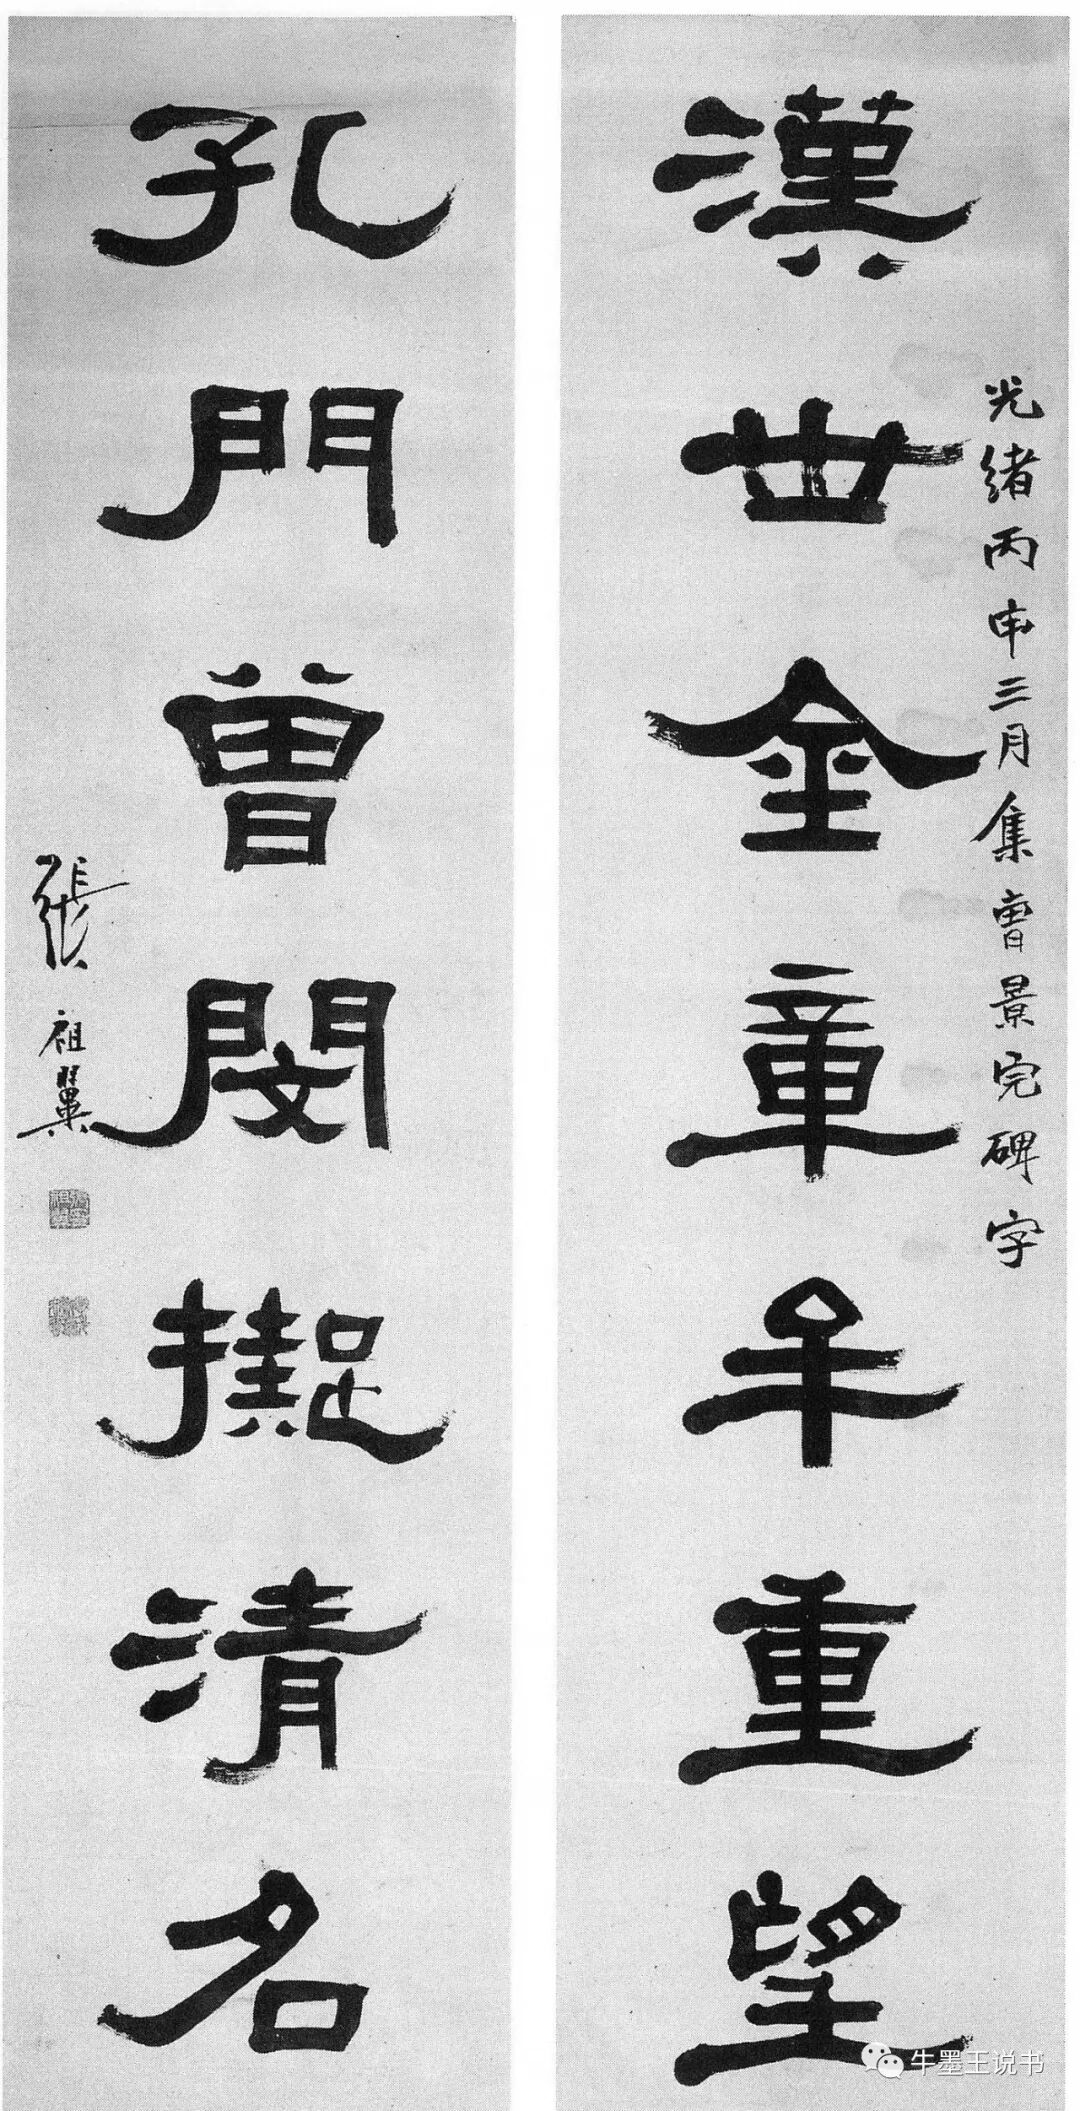 光緒丙申三月集曹景完碑字
漢世金章牟重望
孔門曾閔擬清名
張祖翼
牛墨王说书